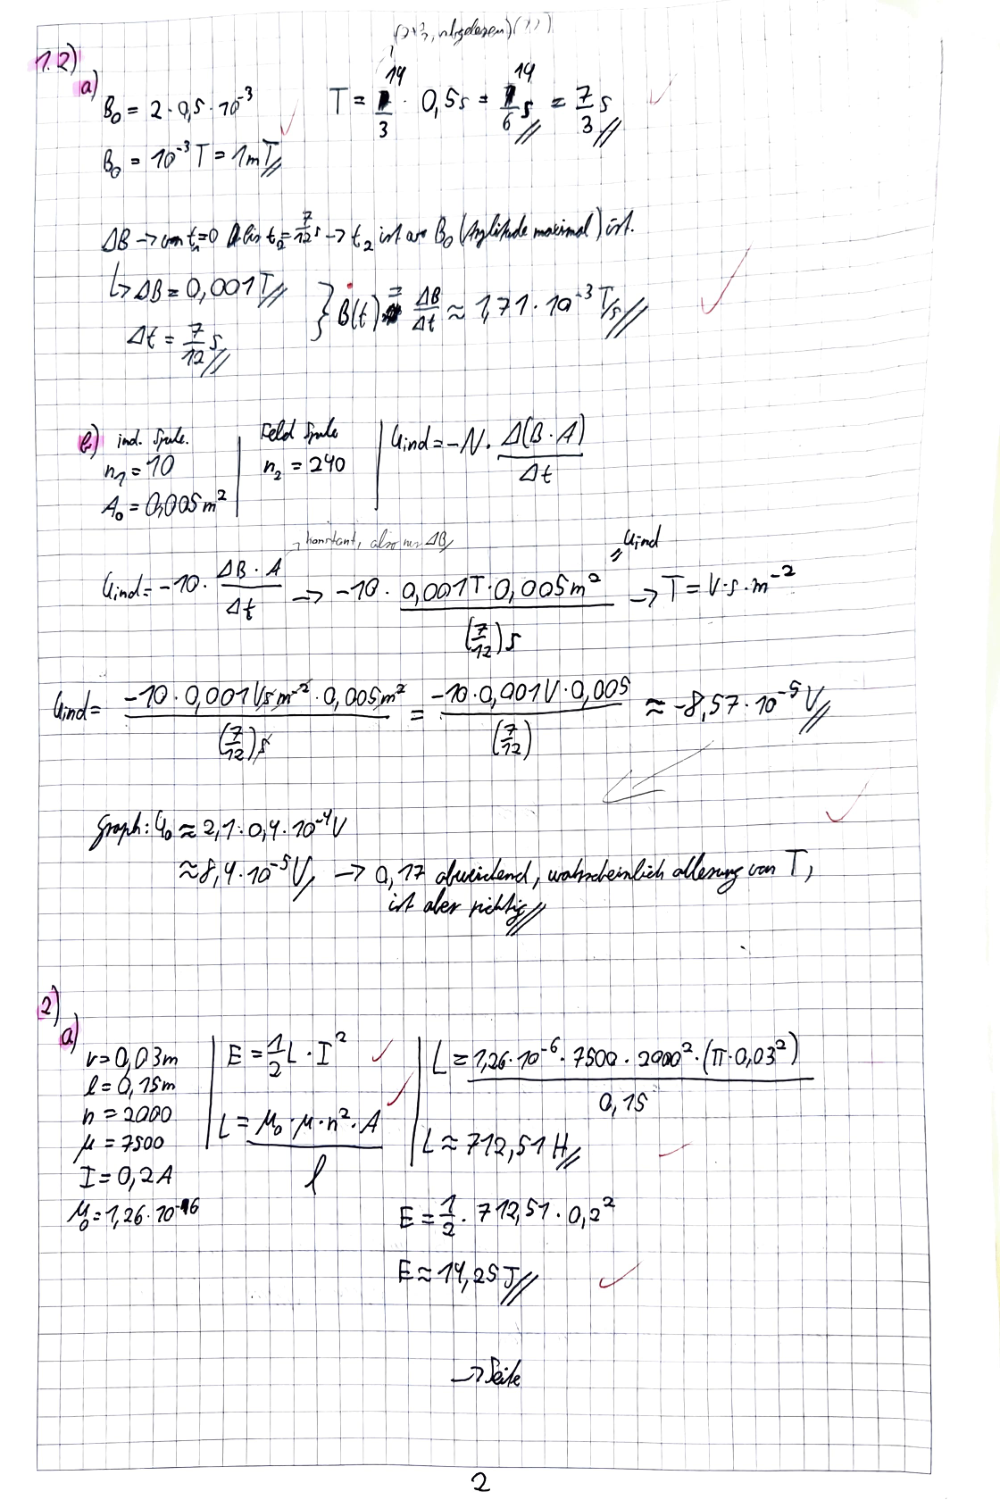 1.2)
a)
B₀ = 2 · 0,5 · 10⁻³
T = 14/3 · 0,5s = 14/6 s = 7/3 s
B₀ = 10⁻³ T = 1mT
ΔB → von t₁=0 bis t₂=7/12 s → t₂ ist wo B₀ (Amplitude maximal) ist.
↳ ΔB = 0,001T
Δt = 7/12 s
} Ḃ(t) = ΔB/Δt ≈ 1,71 · 10⁻³ T/s
b) ind. Spule.
n₁ = 10
A₀ = 0,005m²
Feld Spule
n₂ = 240
Uind = -N · Δ(B · A)/Δt
konstant, also nur ΔB
Uind = -10 · ΔB · A/Δt → -10 · 0,001T · 0,005m²/(7/12)s = Uind → T = V·s·m⁻²
Uind = -10 · 0,001Vsm⁻² · 0,005m²/(7/12)s = -10 · 0,001V · 0,005/(7/12) ≈ -8,57 · 10⁻⁵ V
Graph: U₀ ≈ 2,1 · 0,4 · 10⁻⁴V
≈ 8,4 · 10⁻⁵V → 0,17 abweichend, wahrscheinlich ablesung von T,
ist aber richtig
2)
a)
r = 0,03m
l = 0,15m
n = 2000
μ = 7500
I = 0,2A
μ₀ = 1,26 · 10⁻⁶
E = 1/2 L · I²
L = μ₀ · μ · n² · A/l
L = 1,26 · 10⁻⁶ · 7500 · 2000² · (π · 0,03²)/0,15
L ≈ 712,51 H
E = 1/2 · 712,51 · 0,2²
E ≈ 14,25 J
→ Seite
2